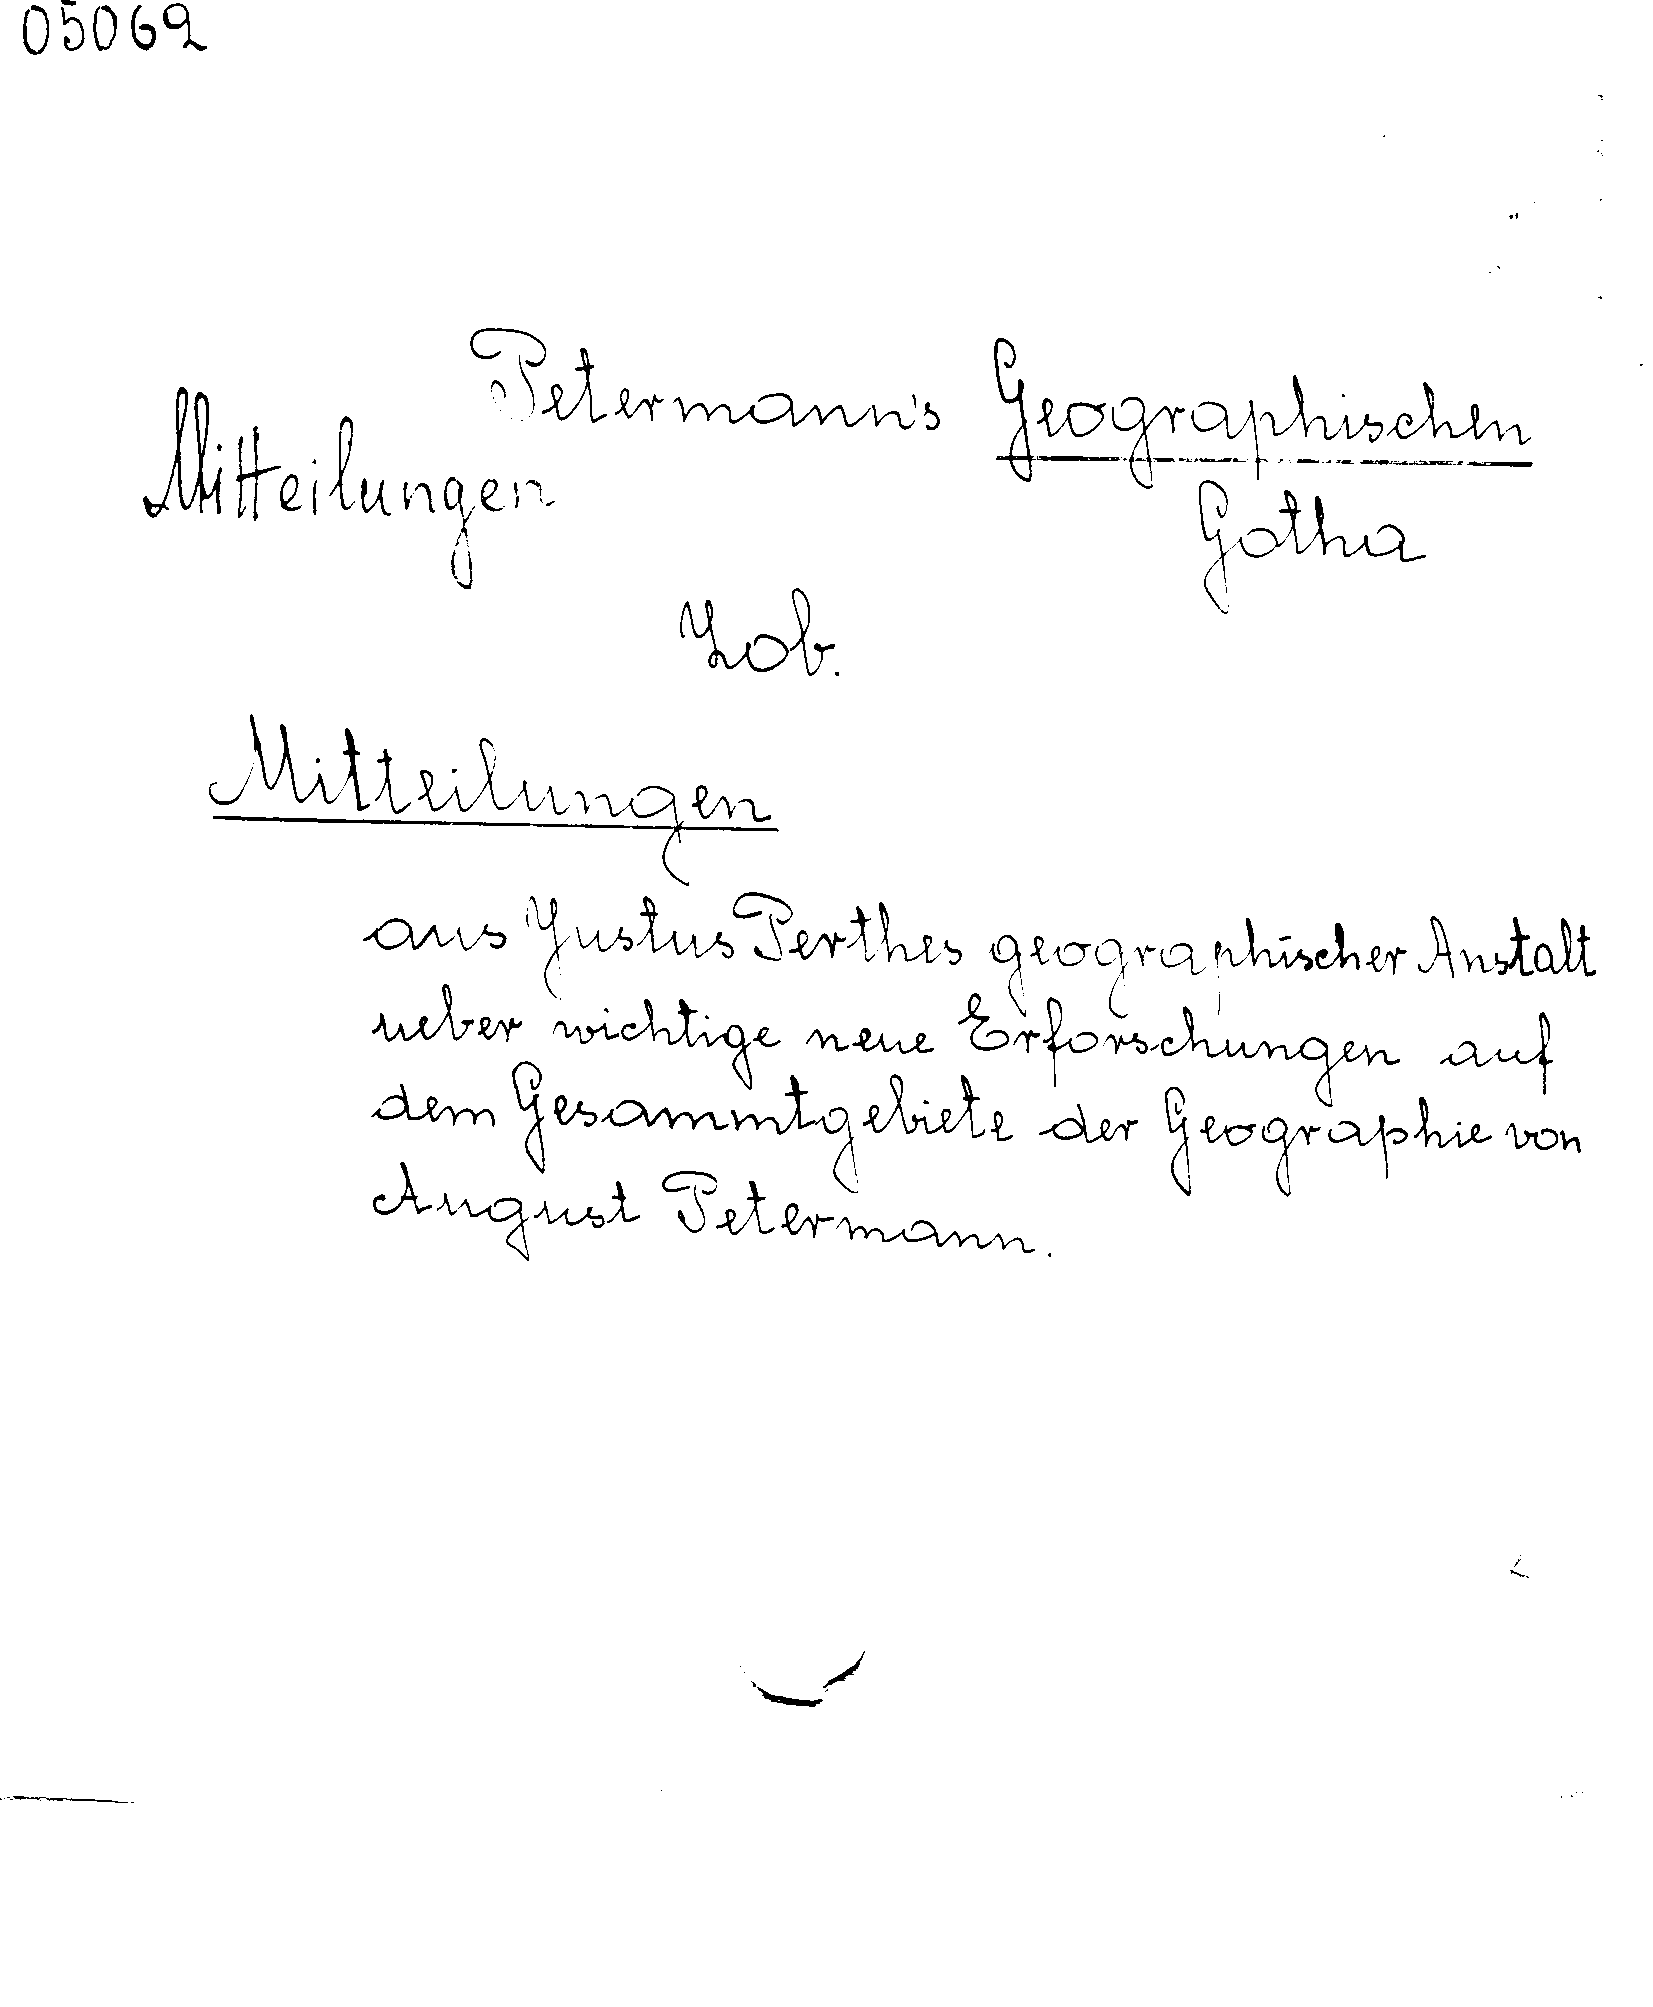 05062
Petermann's Geographischen
Mitteilungen
Gotha
Zob.
Mitteilungen
aus Justus Perthes geographischer Anstalt
ueber wichtige neue Erforschungen auf
dem Gesammtgebiete der Geographie von
August Petermann.